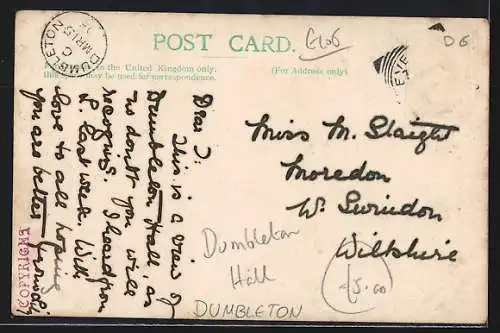 POST CARD.
to the United Kingdom only.
may be used for correspondence.
(For Address only)
DUMBLETON
C
MR 15
Glos
D6
Dear J:
This is a view of
Dumbleton Hall, as
no doubt you will
recognise. I heard from
L. last week. With
love to all hoping
you are better
Miss M. Slaight
Moredon
Nr. Swindon
Wiltshire
Dumbleton
Hall
DUMBLETON
£5.00
COPYRIGHT